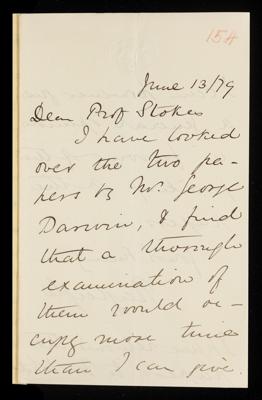 154
June 13/79
Dear Prof Stokes
I have looked
over the two pa-
pers by Mr. George
Darwin, & find
that a thorough
examination of
them would oc-
cupy more time
than I can give.